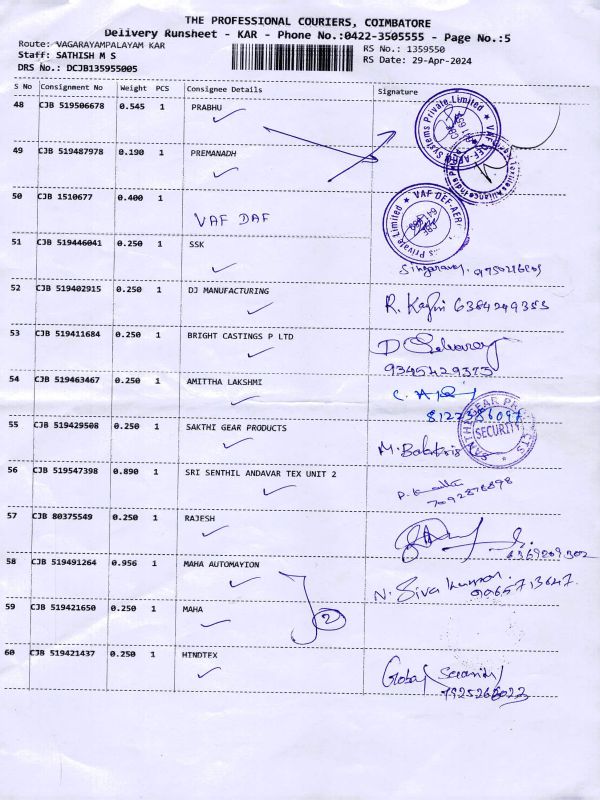 THE PROFESSIONAL COURIERS, COIMBATORE
Delivery Runsheet - KAR - Phone No.:0422-3505555 - Page No.:5
Route: VAGARAYAMPALAYAM KAR
RS No.: 1359550
Staff: SATHISH M S
RS Date: 29-Apr-2024
DRS No.: DCJB135955005
S No Consignment No Weight PCS Consignee Details Signature
48 CJB 519506678 0.545 1 PRABHU
49 CJB 519487978 0.190 1 PREMANADH
50 CJB 1510677 0.400 1
VAF DAF
VAF DEF-AER
Private Limited
51 CJB 519446041 0.250 1 SSK
52 CJB 519402915 0.250 1 DJ MANUFACTURING
53 CJB 519411684 0.250 1 BRIGHT CASTINGS P LTD
54 CJB 519463467 0.250 1 AMITTHA LAKSHMI
55 CJB 519429508 0.250 1 SAKTHI GEAR PRODUCTS
SECURITY
56 CJB 519547398 0.890 1 SRI SENTHIL ANDAVAR TEX UNIT 2
57 CJB 80375549 0.250 1 RAJESH
58 CJB 519491264 0.956 1 MAHA AUTOMAYION
N. Siva Kumar.
59 CJB 519421650 0.250 1 MAHA
2
60 CJB 519421437 0.250 1 HINDTEX